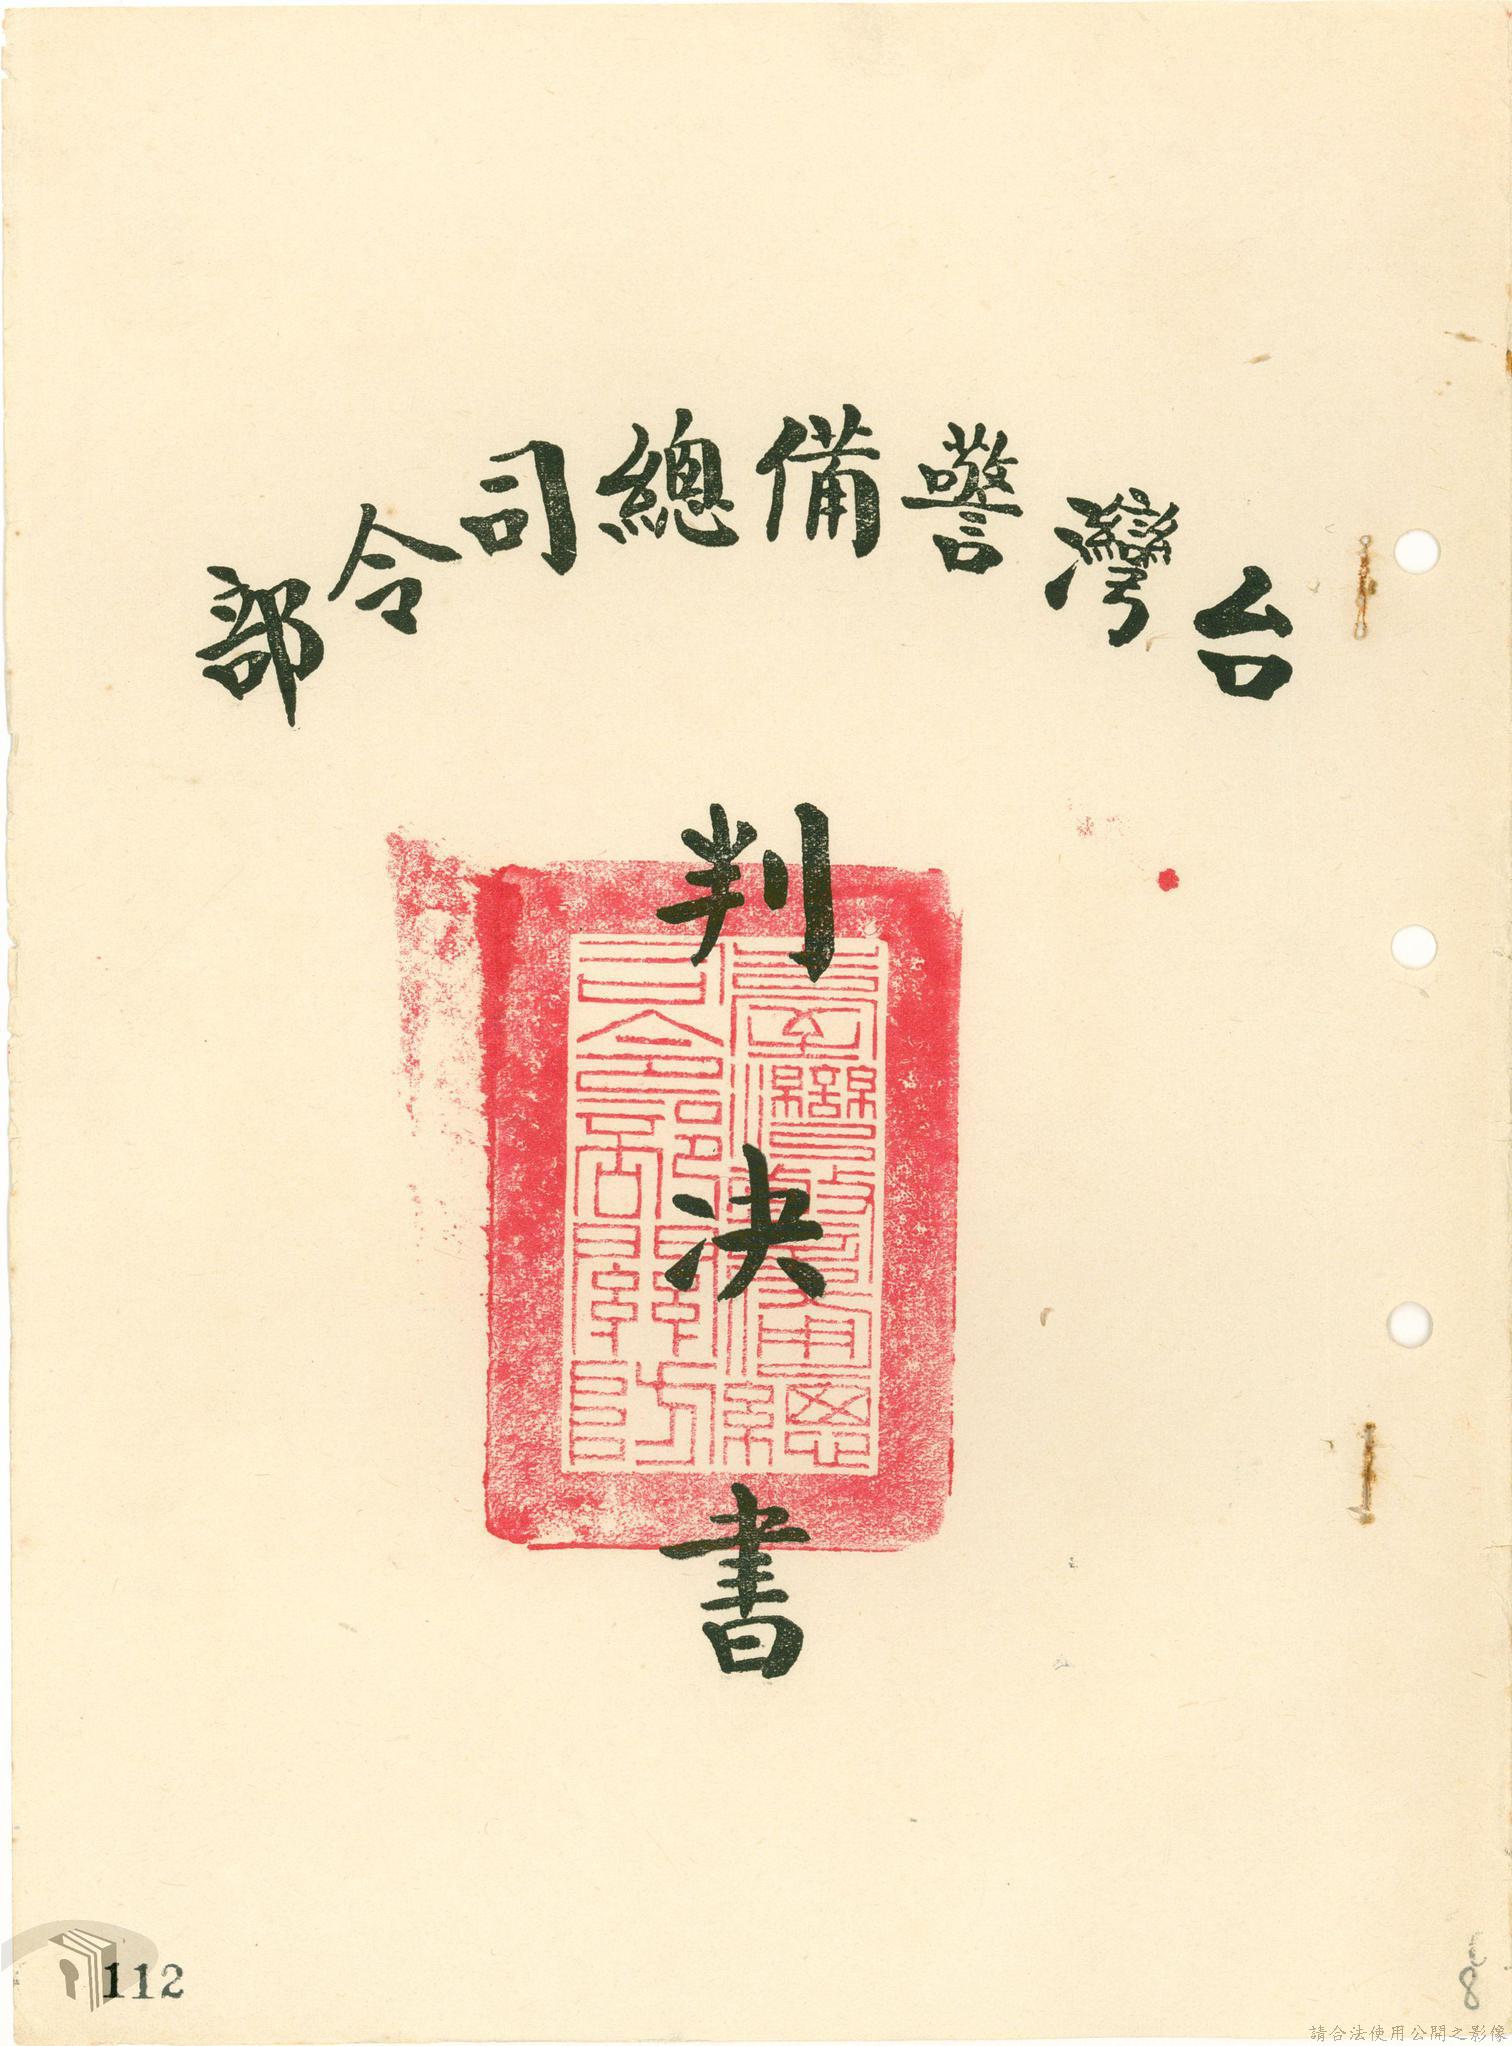 台灣警備總司令部
判決書
臺灣警備總
司令部軍法處
112
8
請合法使用公開之影像